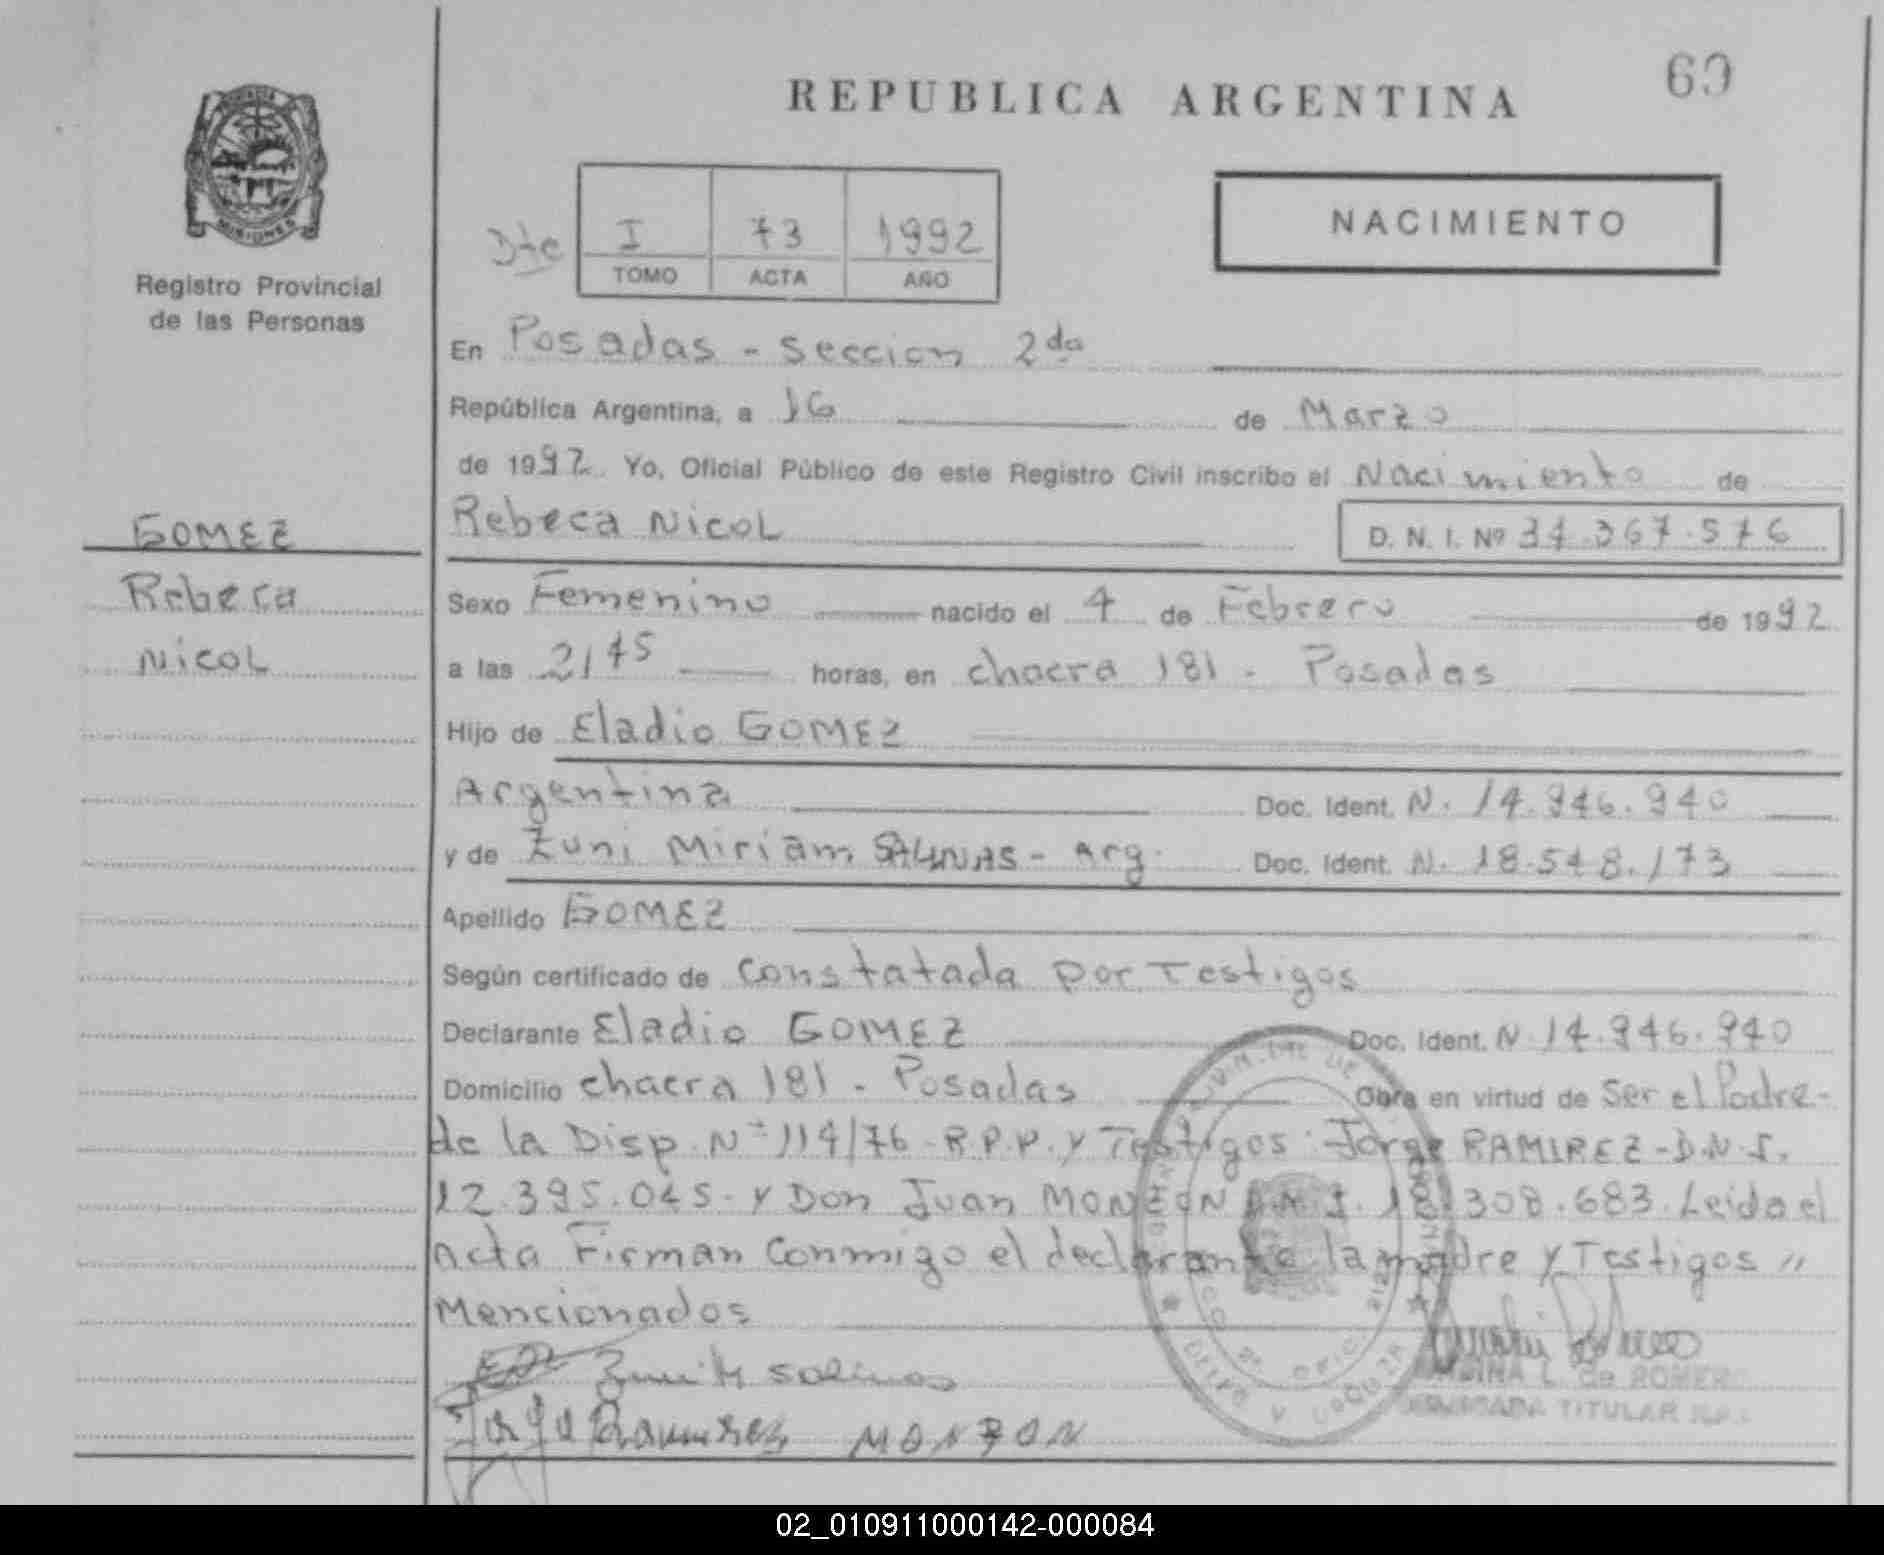 REPUBLICA ARGENTINA
69
MISIONES
Registro Provincial
de las Personas
Dte
I
73
1992
TOMO
ACTA
AÑO
NACIMIENTO
En Posadas - seccion 2da
República Argentina, a 16 de Marzo
de 1992 Yo, Oficial Público de este Registro Civil inscribo el Nacimiento de
GOMEZ
Rebeca Nicol
D. N. I. Nº 34.367.576
Rebeca
Nicol
Sexo Femenino nacido el 4 de Febrero de 1992
a las 2145 horas, en chacra 181 - Posadas
Hijo de Eladio GOMEZ
Argentina Doc. Ident. N. 14.946.940
y de Zuni Miriam SALINAS - Arg. Doc. Ident. N. 18.548.173
Apellido GOMEZ
Según certificado de Constatada por Testigos
Declarante Eladio GOMEZ Doc. Ident. N. 14.946.940
Domicilio chacra 181 - Posadas Obra en virtud de Ser el Padre-
de la Disp. Nº 114/76 - R.P.P. y Testigos: Jorge RAMIREZ - D.N.I.
12.395.045 - y Don Juan MONZON D.N.I. 18.308.683. Leida el
acta Firman Conmigo el declarante la madre y Testigos "
Mencionados
Salinas
Ramirez MONZON
L. de ROMERO
TITULAR
02_010911000142-000084